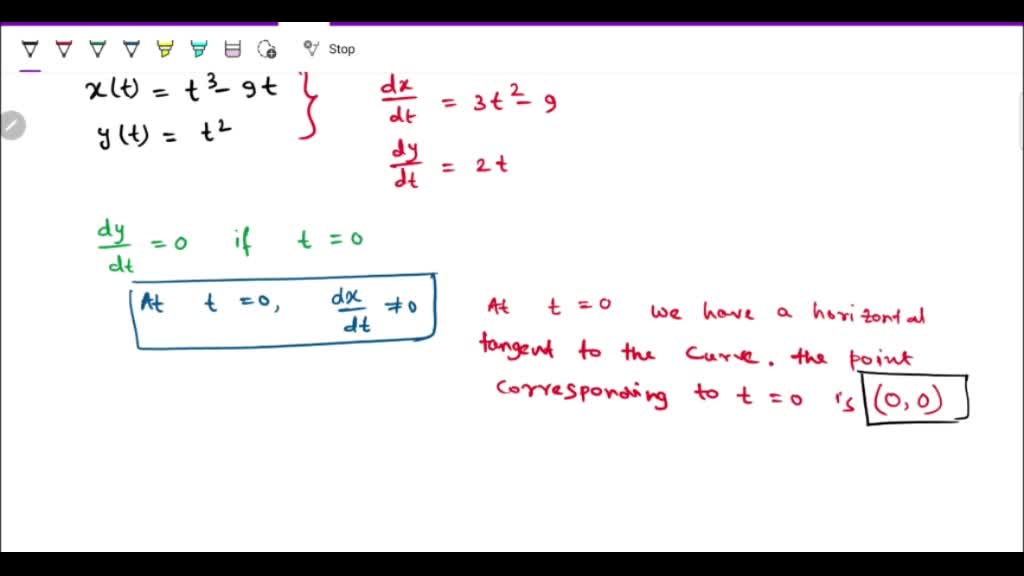 Stop
x(t) = t³ - 9t
y(t) = t²
dx/dt = 3t² - 9
dy/dt = 2t
dy/dt = 0 if t = 0
At t = 0, dx/dt ≠ 0
At t = 0 we have a horizontal
tangent to the curve. the point
corresponding to t = 0 is (0,0)